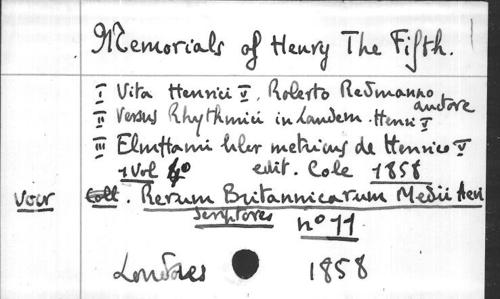 Memorials of Henry The Fifth.
I Vita Henrici V. Roberto Redmanno auctore
II Versus Rhythmici in laudem. Henri V
III Elmhami liber metricus de Henrico V
1 vol 4° edit. Cole 1858
voir Coll. Rerum Britannicarum Medii Aevi
scriptores n° 11
Londres 1858